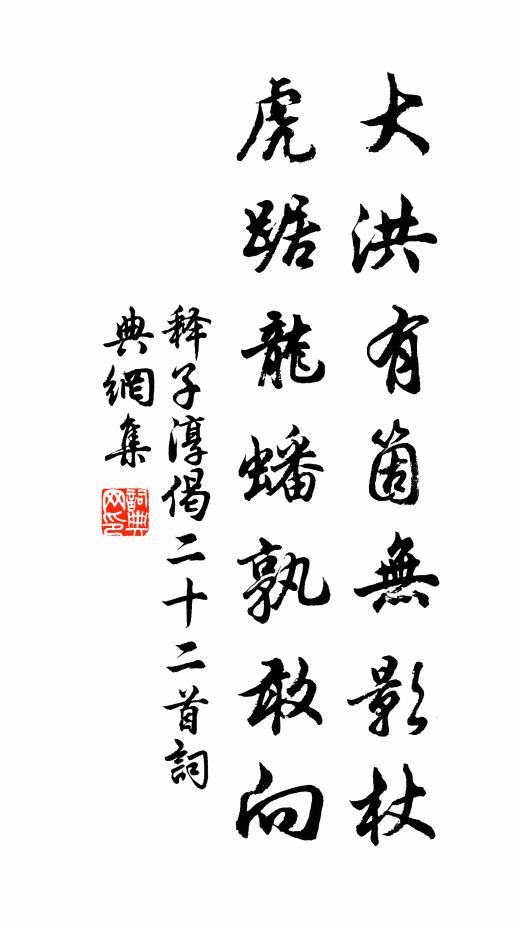 大洪有箇無影杖
虎踞龍蟠孰敢向
释子淳偈二十二首詞
典網集
詞典網印